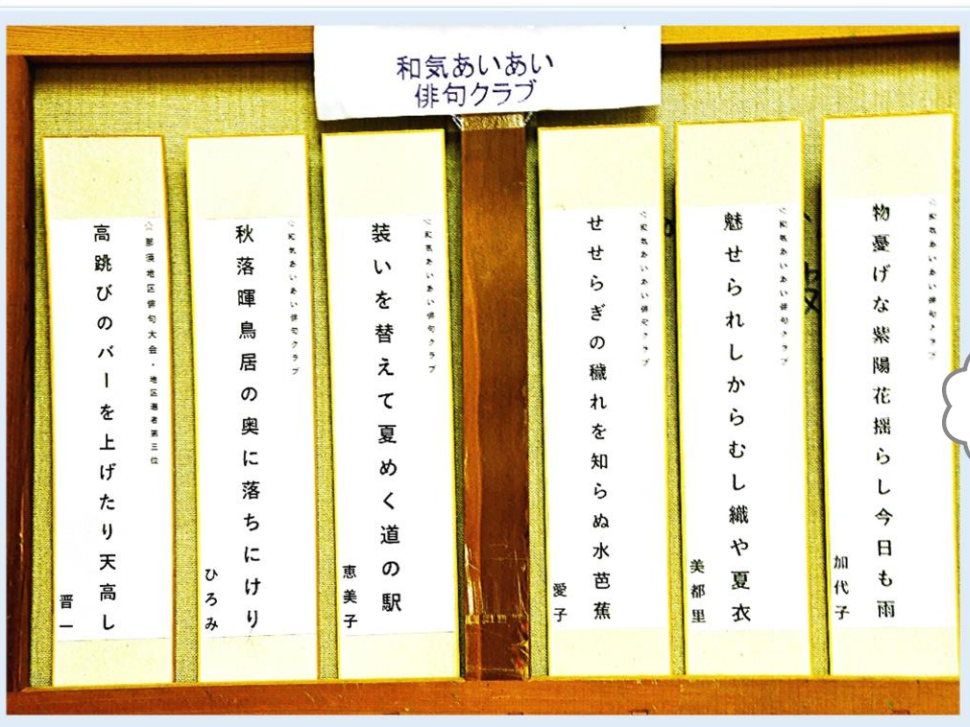 和気あいあい
俳句クラブ
☆和気あいあい俳句クラブ
物憂げな紫陽花揺らし今日も雨
加代子
☆和気あいあい俳句クラブ
魅せられしからむし織や夏衣
美都里
☆和気あいあい俳句クラブ
せせらぎの穢れを知らぬ水芭蕉
愛子
☆和気あいあい俳句クラブ
装いを替えて夏めく道の駅
恵美子
☆和気あいあい俳句クラブ
秋落暉鳥居の奥に落ちにけり
ひろみ
☆那須地区俳句大会・地区選者第三位
高跳びのバーを上げたり天高し
晋一